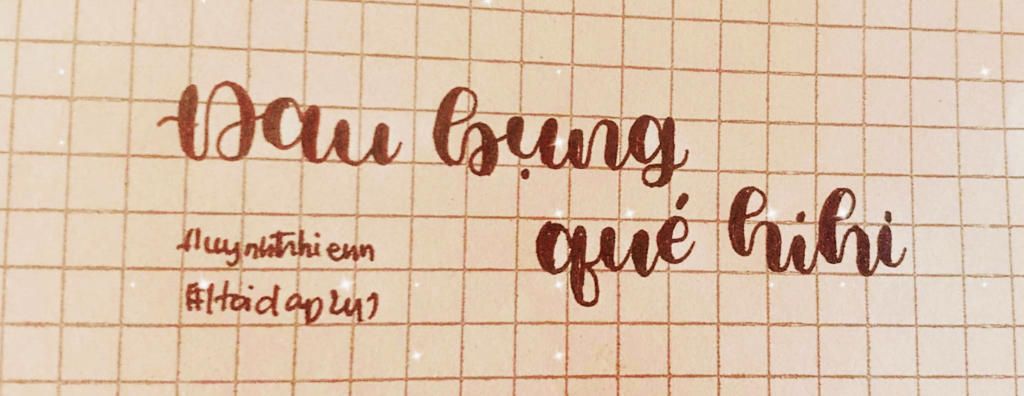 Đau bụng
qué hihi
Huynhthhienn
#Hoidap247